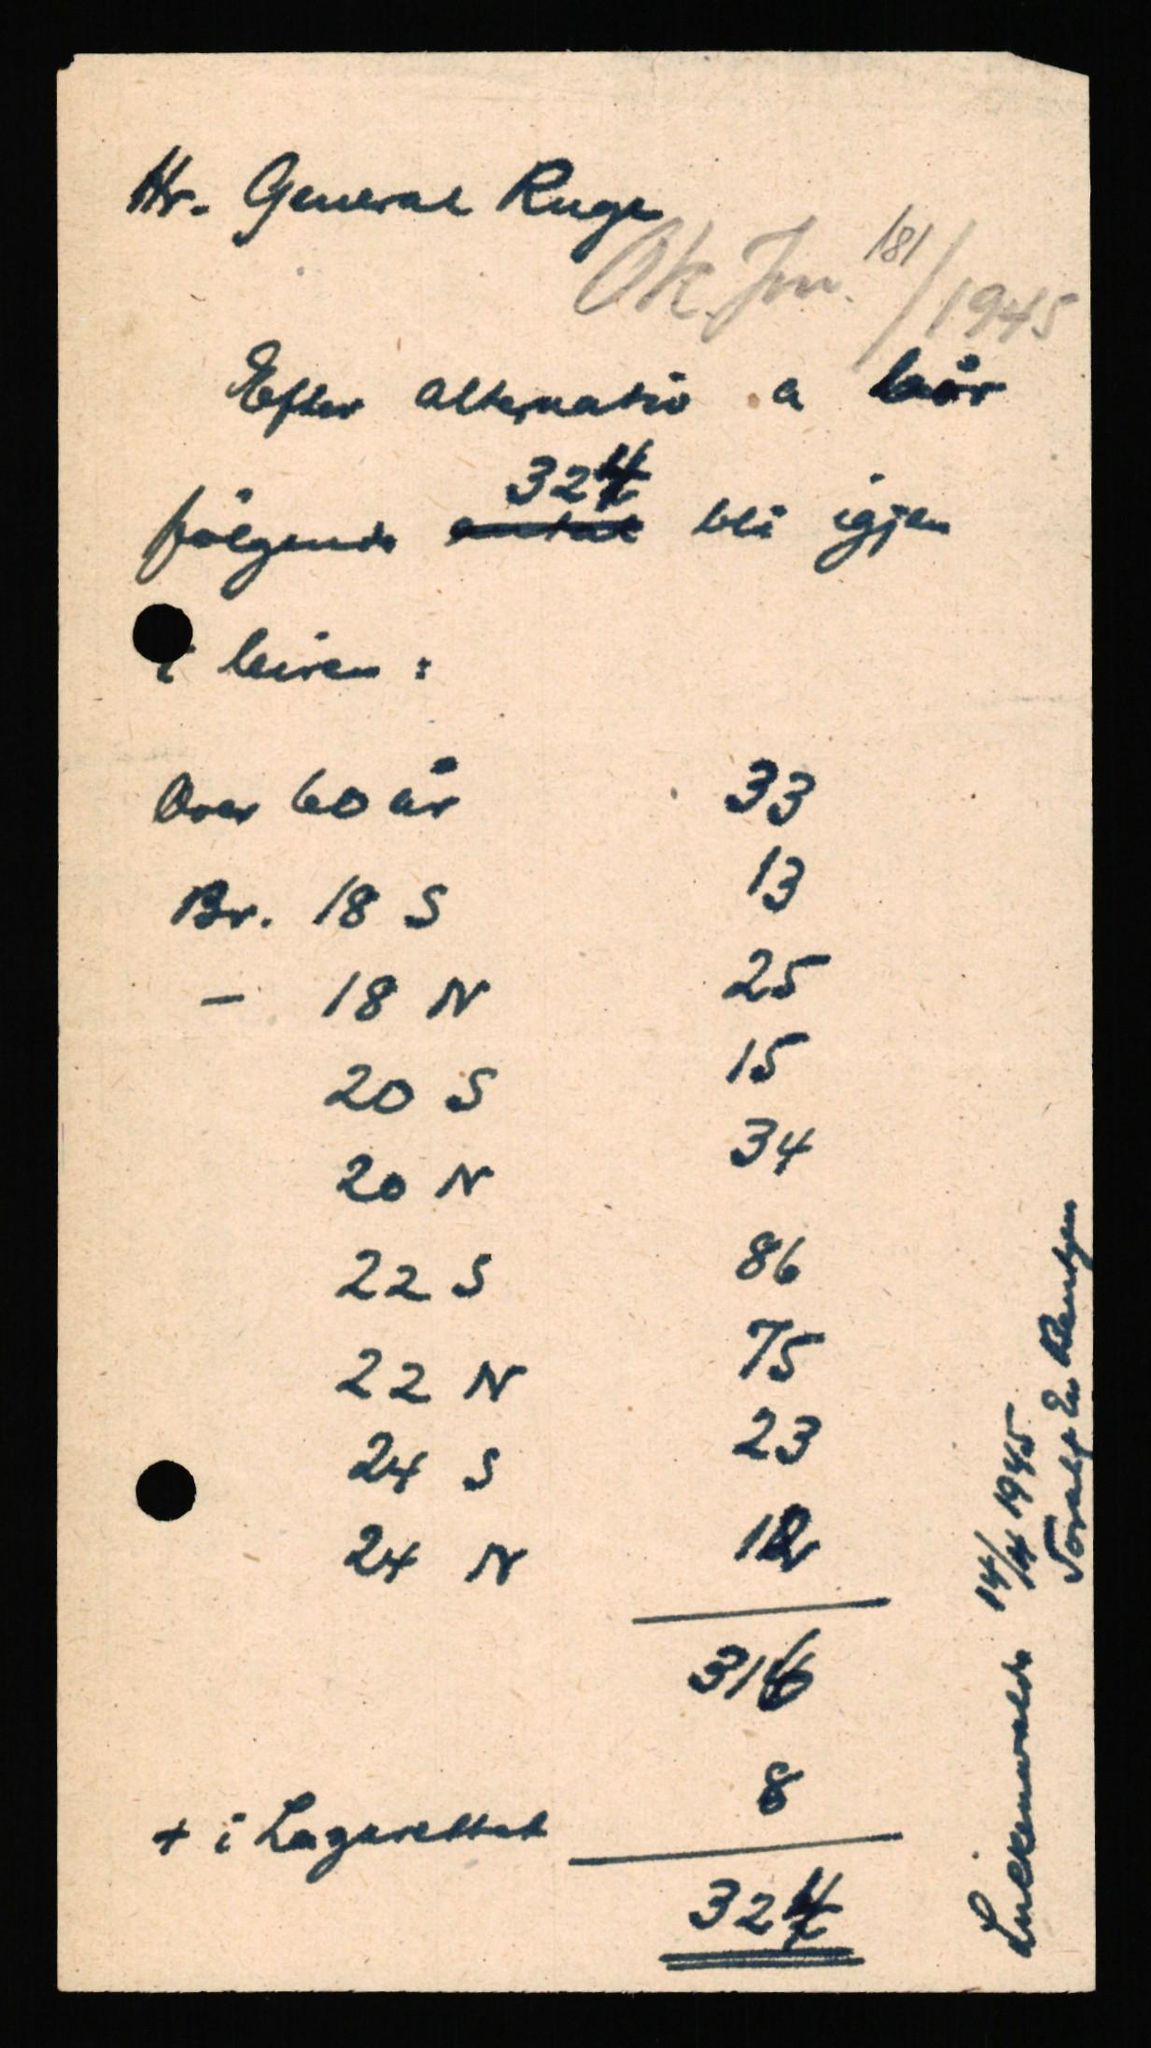 Hr. General Ruge
Ok. Jnr. 181/1945
Efter alternativ a bör
324
følgende antal bli igjen
i leiren :
Over 60 år 33
Br. 18 S 13
- 18 N 25
20 S 15
20 N 34
22 S 86
22 N 75
24 S 23
24 N 12
316
+ i Lazarettet 8
324
Luckenwalde 14/4 1945